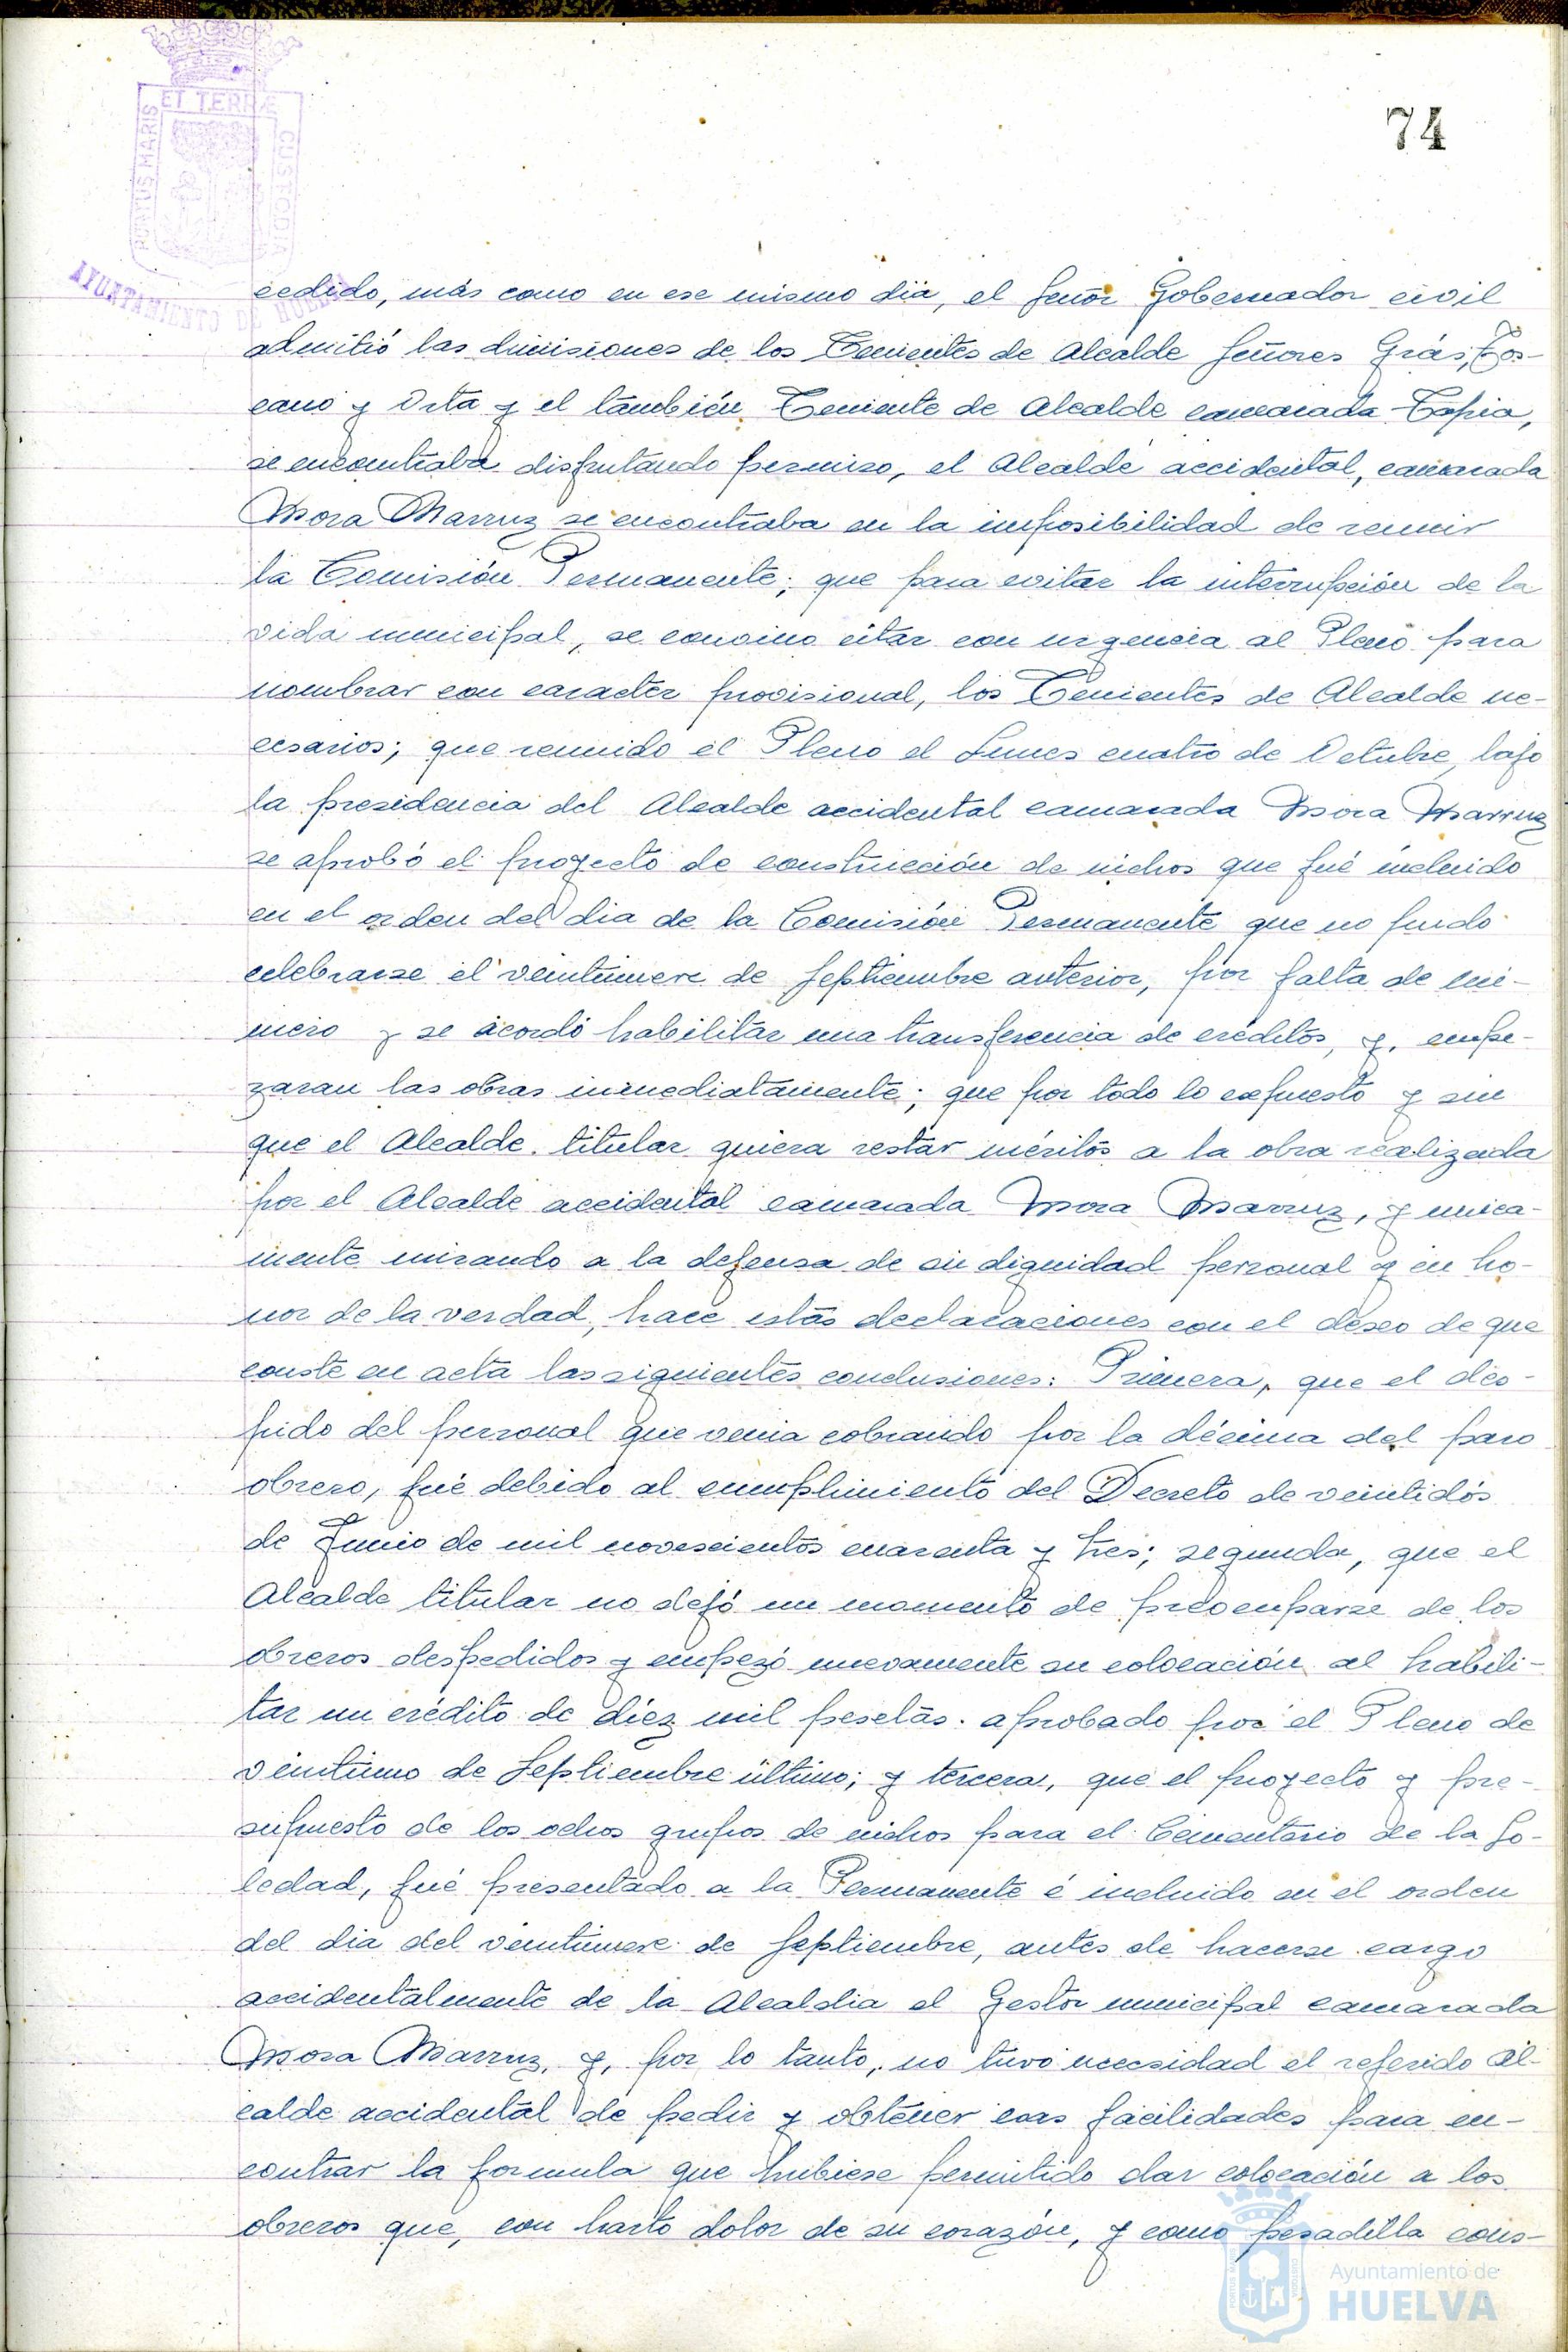 ET TERRÆ
PORTUS MARIS
CUSTODIA
AYUNTAMIENTO DE HUELVA
74
cedido, más como en ese mismo dia, el Señor Gobernador civil
admitió las dimisiones de los Tenientes de Alcalde Señores Grás, Tos-
cano y Orta y el también Teniente de Alcalde camarada Tapia,
se encontraba disfrutando permiso, el Alcalde accidental, camarada
Mora Marruz se encontraba en la imposibilidad de reunir
la Comisión Permanente; que para evitar la interrupción de la
vida municipal, se convino citar con urgencia al Pleno para
nombrar con caracter provisional, los Tenientes de Alcalde ne-
cesarios; que reunido el Pleno el Lunes cuatro de Octubre, bajo
la presidencia del Alcalde accidental camarada Mora Marruz
se aprobó el proyecto de construcción de nichos que fué incluido
en el orden del dia de la Comisión Permanente que no pudo
celebrarse el veintinueve de Septiembre anterior, por falta de nú-
mero y se acordó habilitar una transferencia de créditos, y, empe-
zaran las obras inmediatamente; que por todo lo expuesto y sin
que el Alcalde titular quiera restar méritos a la obra realizada
por el Alcalde accidental camarada Mora Marruz, y unica-
mente mirando a la defensa de su dignidad personal y en ho-
nor de la verdad, hace estas declaraciones con el deseo de que
conste en acta las siguientes conclusiones: Primera, que el des-
pido del personal que venia cobrando por la décima del paro
obrero, fué debido al cumplimiento del Decreto de veintidós
de Junio de mil novescientos cuarenta y tres; segunda, que el
Alcalde titular no dejó un momento de preocuparse de los
obreros despedidos y empezó nuevamente su colocación al habili-
tar un crédito de diez mil pesetas aprobado por el Pleno de
veintiuno de Septiembre último; y tercera, que el proyecto y pre-
supuesto de los ochos grupos de nichos para el Cementerio de la So-
ledad, fué presentado a la Permanente é incluido en el orden
del dia del veintinueve de Septiembre, antes de hacerse cargo
accidentalmente de la Alcaldia el Gestor municipal camarada
Mora Marruz, y, por lo tanto, no tuvo necesidad el referido Al-
calde accidental de pedir y obtener esas facilidades para en-
contrar la formula que hubiese permitido dar colocación a los
obreros que, con harto dolor de su corazón, y como pesadilla cons-
Ayuntamiento de
HUELVA